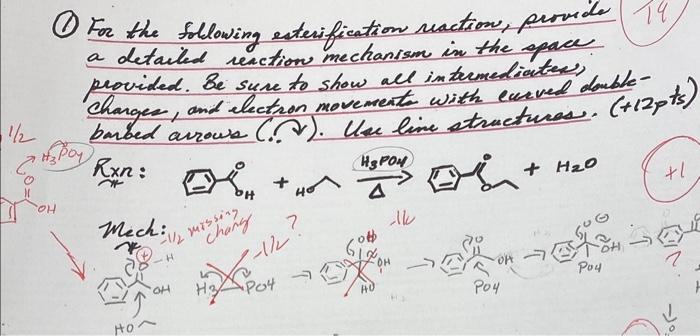 ① For the following esterification reaction, provide
a detailed reaction mechanism in the space
provided. Be sure to show all intermediates,
charges, and electron movements with curved double-
barbed arrows (:↷). Use line structures. (+12pts)
14
1/2
H3PO4
O
OH
Rxn: O OH + HO H3PO4 Δ O O + H2O
+1
Mech: -1/2 missing charge -1/2 ? -1/2
⊕ O-H OH H3 PO4 OH OH HO O OH PO4 O ⊖ OH PO4 ?
HO